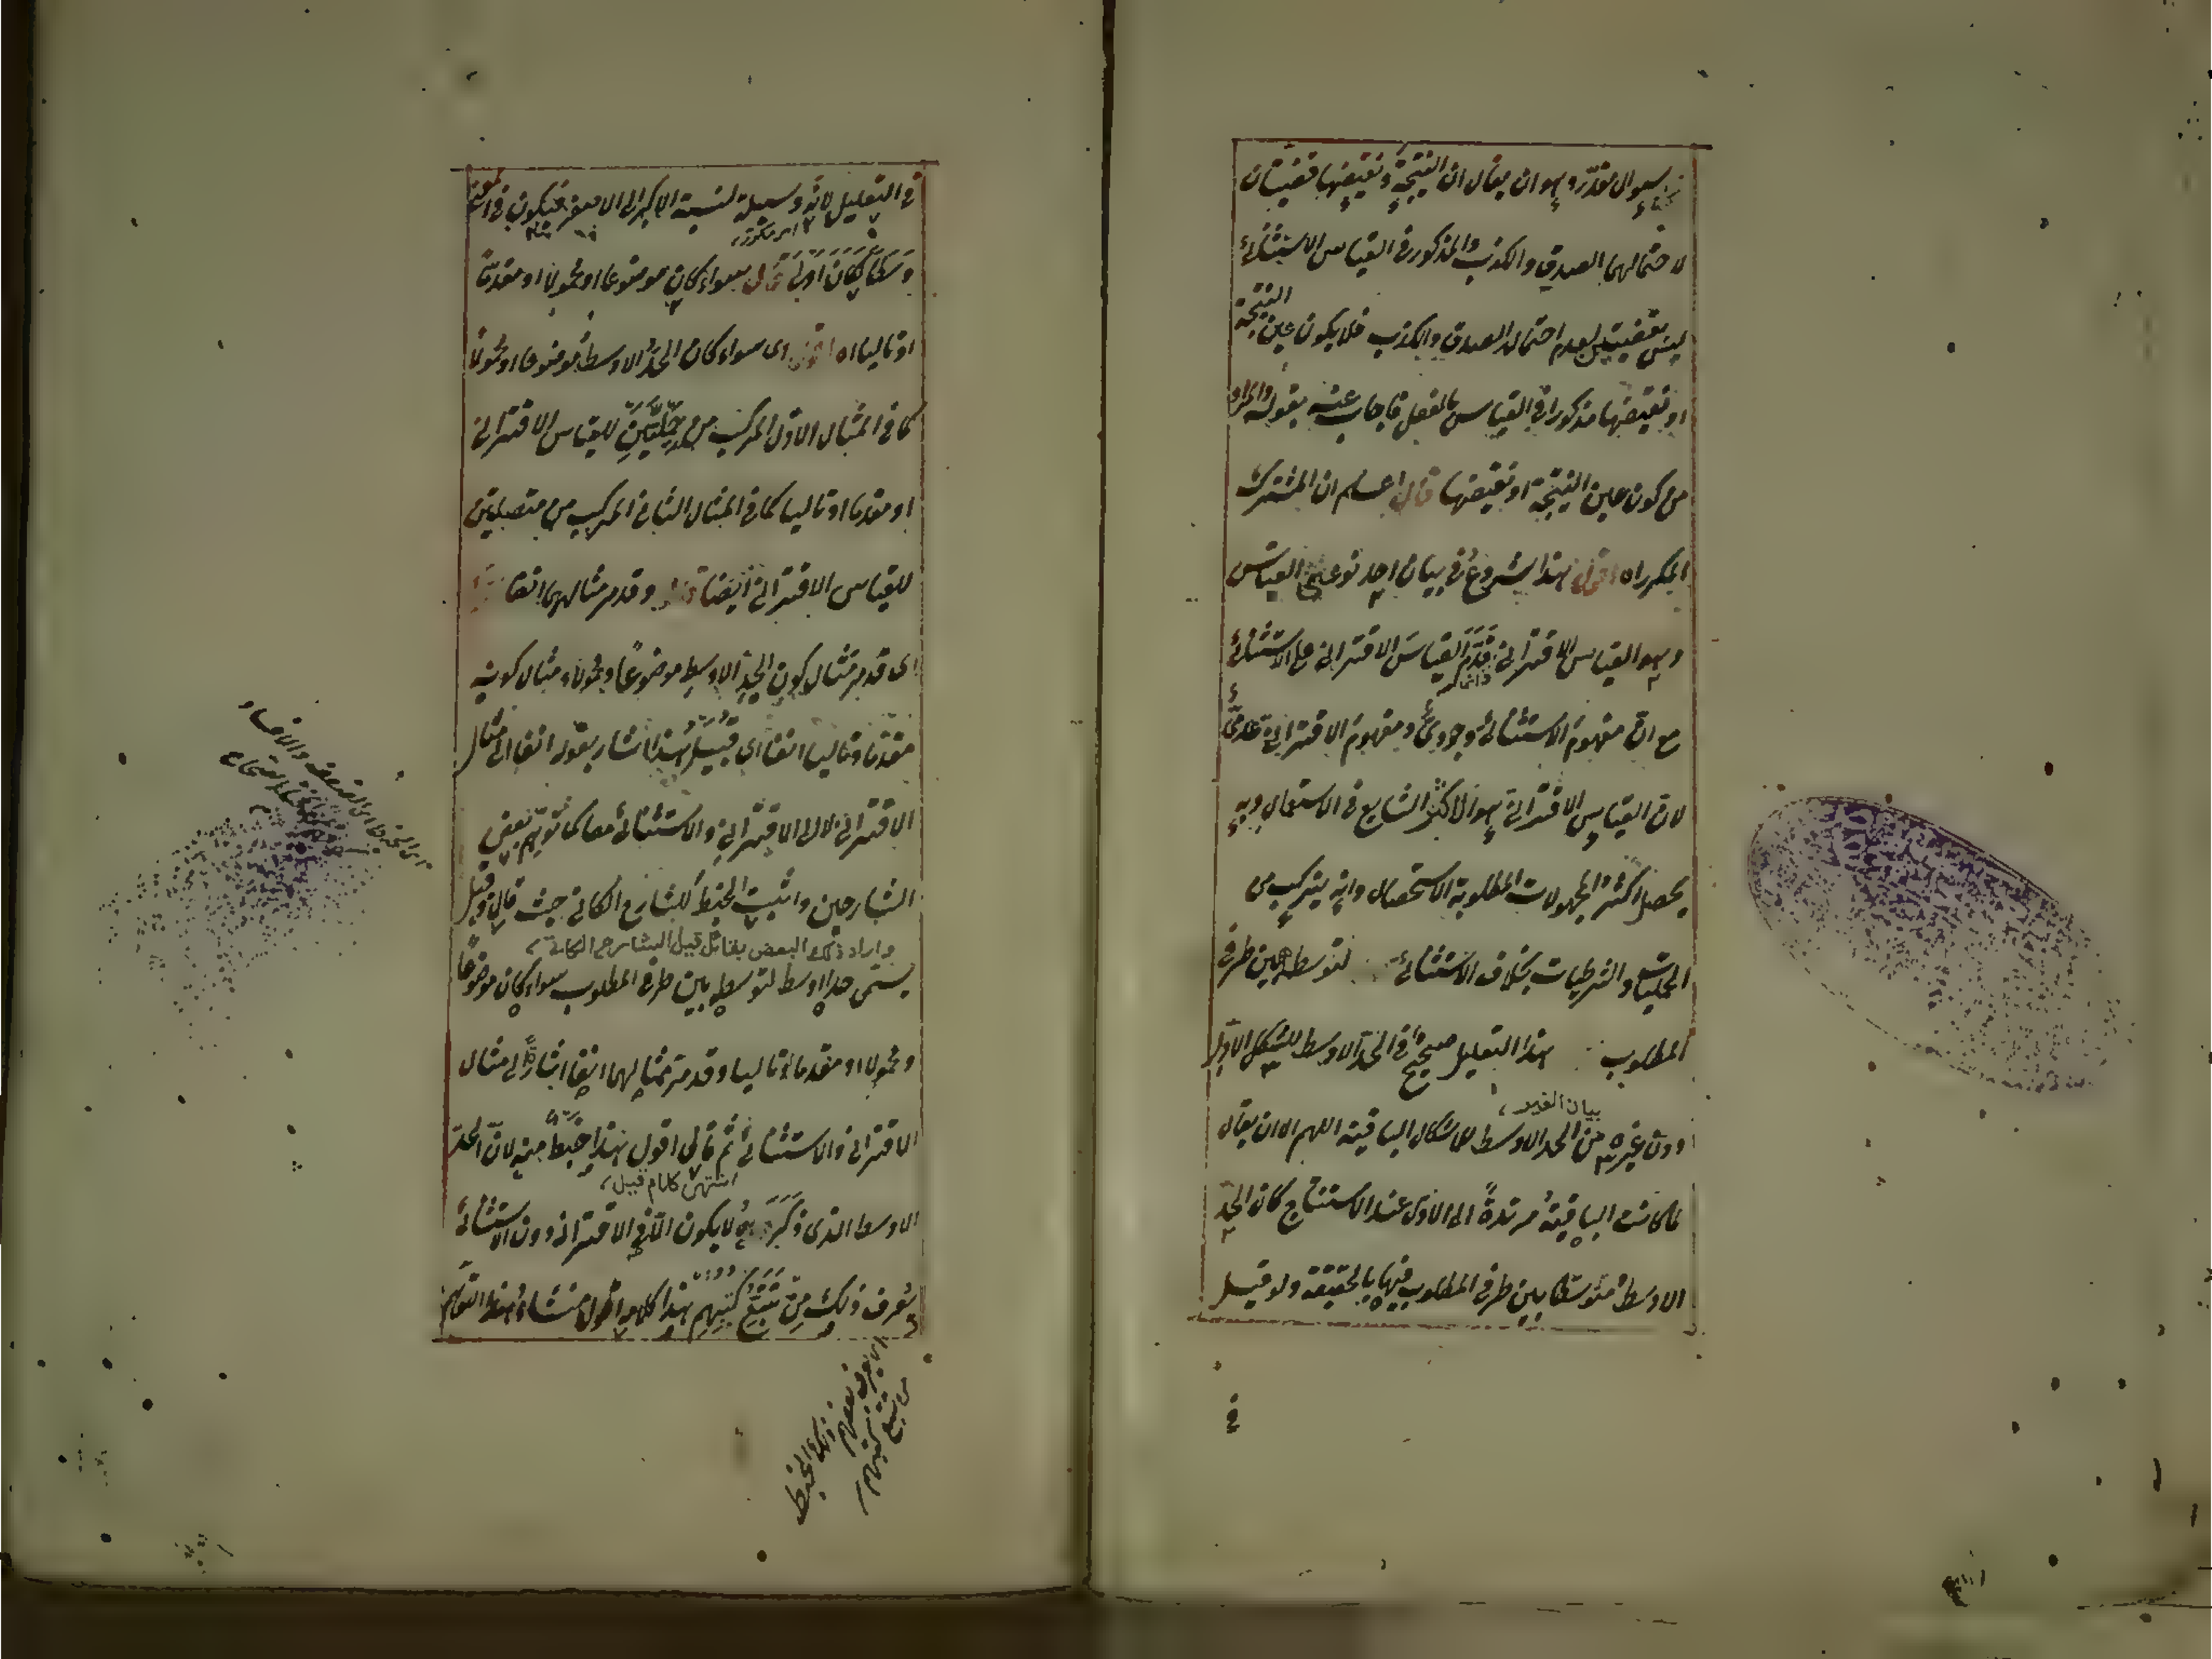 سؤال مقدّر وهو ان يقال ان النتيجة ونقيضها قضيتان
لاحتمالهما الصدق والكذب والمذكور فى القياس الاستثنائى
ليس بقضيتين لعدم احتمالهما الصدق والكذب فلا يكون عين النتيجة
او نقيضها مذكورا فى القياس بالفعل فاجاب عنه بقوله والمراد
من كون عين النتيجة او نقيضها قال اعلم ان المشترك
المكرر اه اقول هذا شروع فى بيان احد نوعى القياس
وهو القياس الاقترانى قدّم القياس الاقترانى على الاستثنائى
مع ان مفهوم الاستثنائى وجودى ومفهوم الاقترانى عدمى
لان القياس الاقترانى هو الاكثر الشايع فى الاستعمال وبه
يحصل اكثر المجهولات المطلوبة الاستحصال وانه يتركب من
الحمليات والشرطيات بخلاف الاستثنائى لتوسطه بين طرفى
المطلوب هذا التعليل صحيح فى الحد الاوسط للشكل الاول
دون غيره من الحد الاوسط للاشكال الباقية اللهم الا ان يقال
بيان الغير
لما كانت الباقية مرتدة الى الاول عند الاستنتاج كان الحد
الاوسط متوسطا بين طرفى المطلوب فيها بالحقيقة ولو قيل
فى
فى التعليل لانه وسيلة لنسبة الاكبر الى الاصغر فيكون فى المعنى
وسطا لكان اولى قال سواء كان موضوعا او محمولا او مقدما
او تاليا اه اقول اى سواء كان الحد الاوسط موضوعا او محمولا
كما فى المثال الاول المركب من حمليتين للقياس الاقترانى
او مقدما او تاليا كما فى المثال الثانى المركب من متصلتين
للقياس الاقترانى ايضا وقد مر مثالهما انفا
اى قد مر مثال كون الحد الاوسط موضوعا ومحمولا ومثال كونه
مقدما وتاليا انفا اى قبيل هذا اشار بقوله انفا الى مثال
الاقترانى لا الى الاقترانى والاستثنائى معا كما توهم بعض
الشارحين واثبت الخبط للشارح الكاتى حيث قال وقيل
واراد ذلك البعض بقائل قيل الشارح الكاتى
يسمى حدا اوسط لتوسطه بين طرفى المطلوب سواء كان موضوعا
ومحمولا او مقدما او تاليا وقد مر مثالهما انفا اشارة الى مثال
الاقترانى والاستثنائى ثم قال اقول هذا خبط منه لان الحد
انتهى كلام قيل
الاوسط الذى ذكره لا يكون الا فى الاقترانى دون الاستثنائى
يعرف ذلك من تتبع كتبهم هذا كلامه اقول منشاء هذا التوهم
من تتبع كتبهم